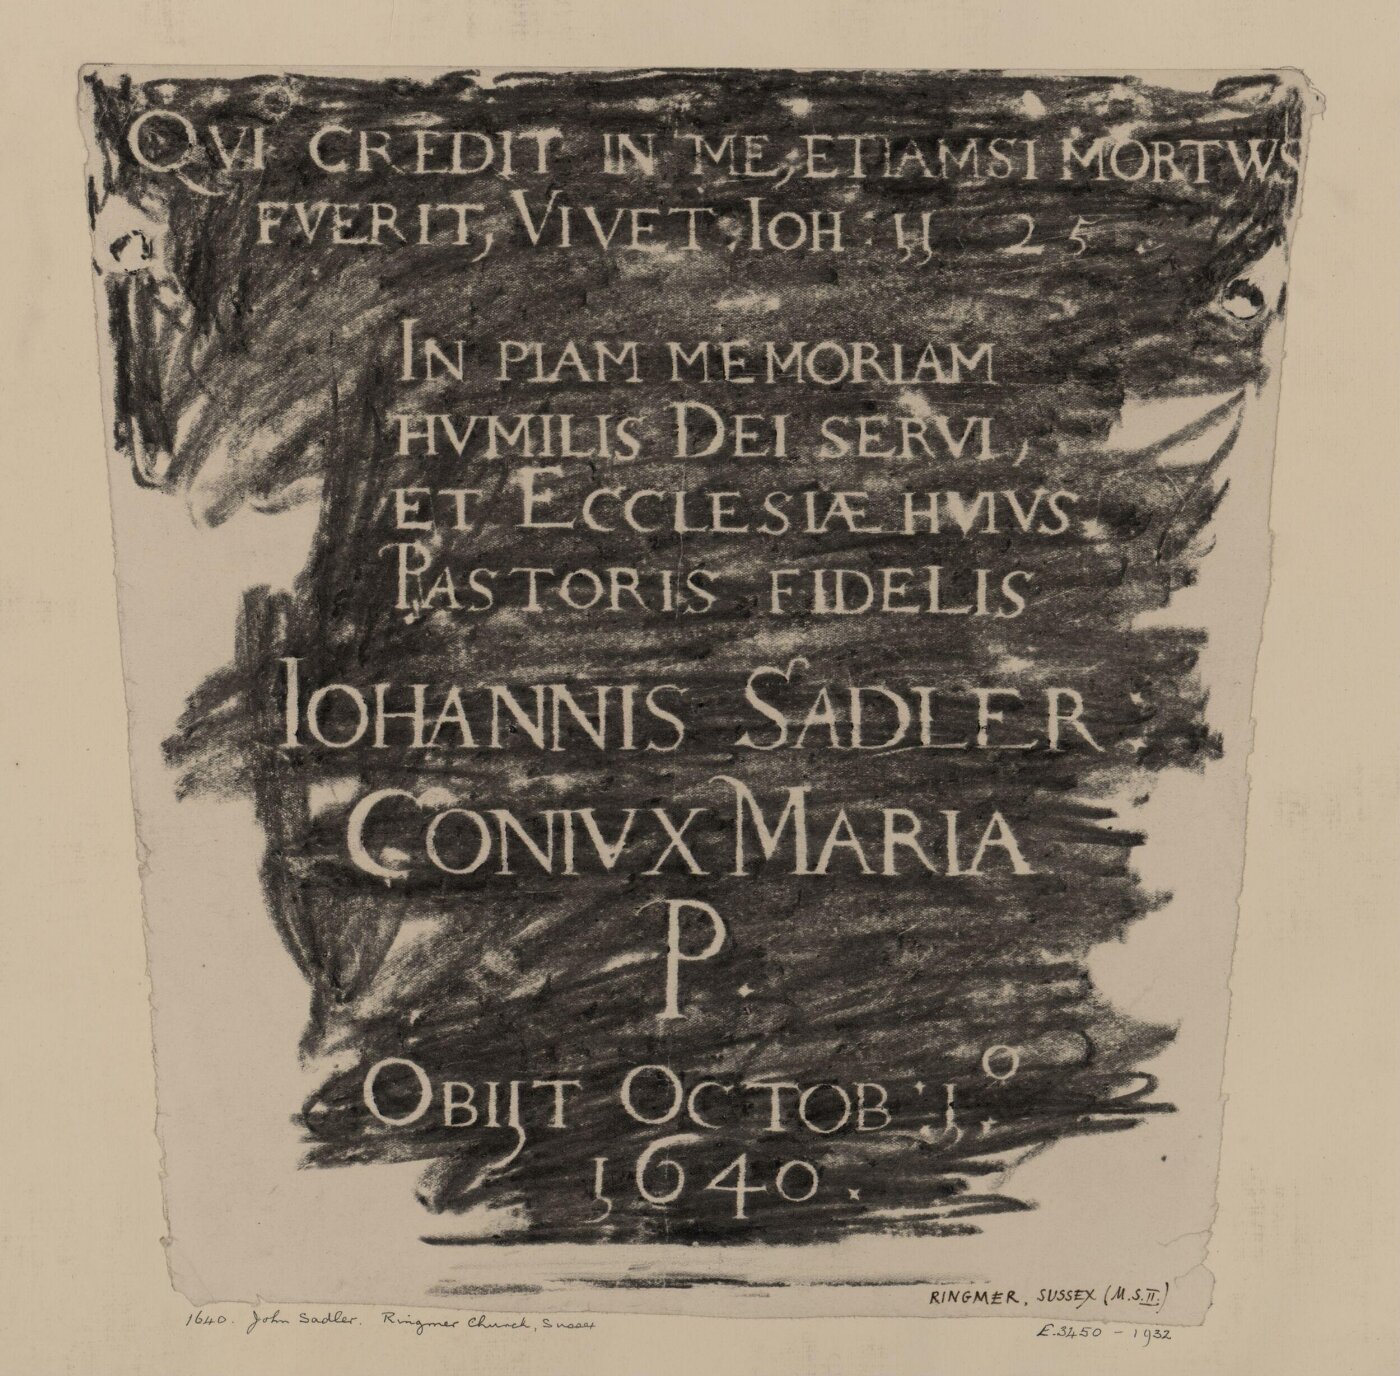 QVI CREDIT IN ME, ETIAMSI MORTVVS
FVERIT, VIVET. IOH : 11 25 .
IN PIAM MEMORIAM
HVMILIS DEI SERVI,
ET ECCLESIÆ HVIVS
PASTORIS FIDELIS
IOHANNIS SADLER :
CONIVX MARIA
P.
OBIJT OCTOB : 1.º
1640 .
RINGMER, SUSSEX (M.S.II.)
1640. John Sadler. Ringmer Church, Sussex
E.3450 - 1932